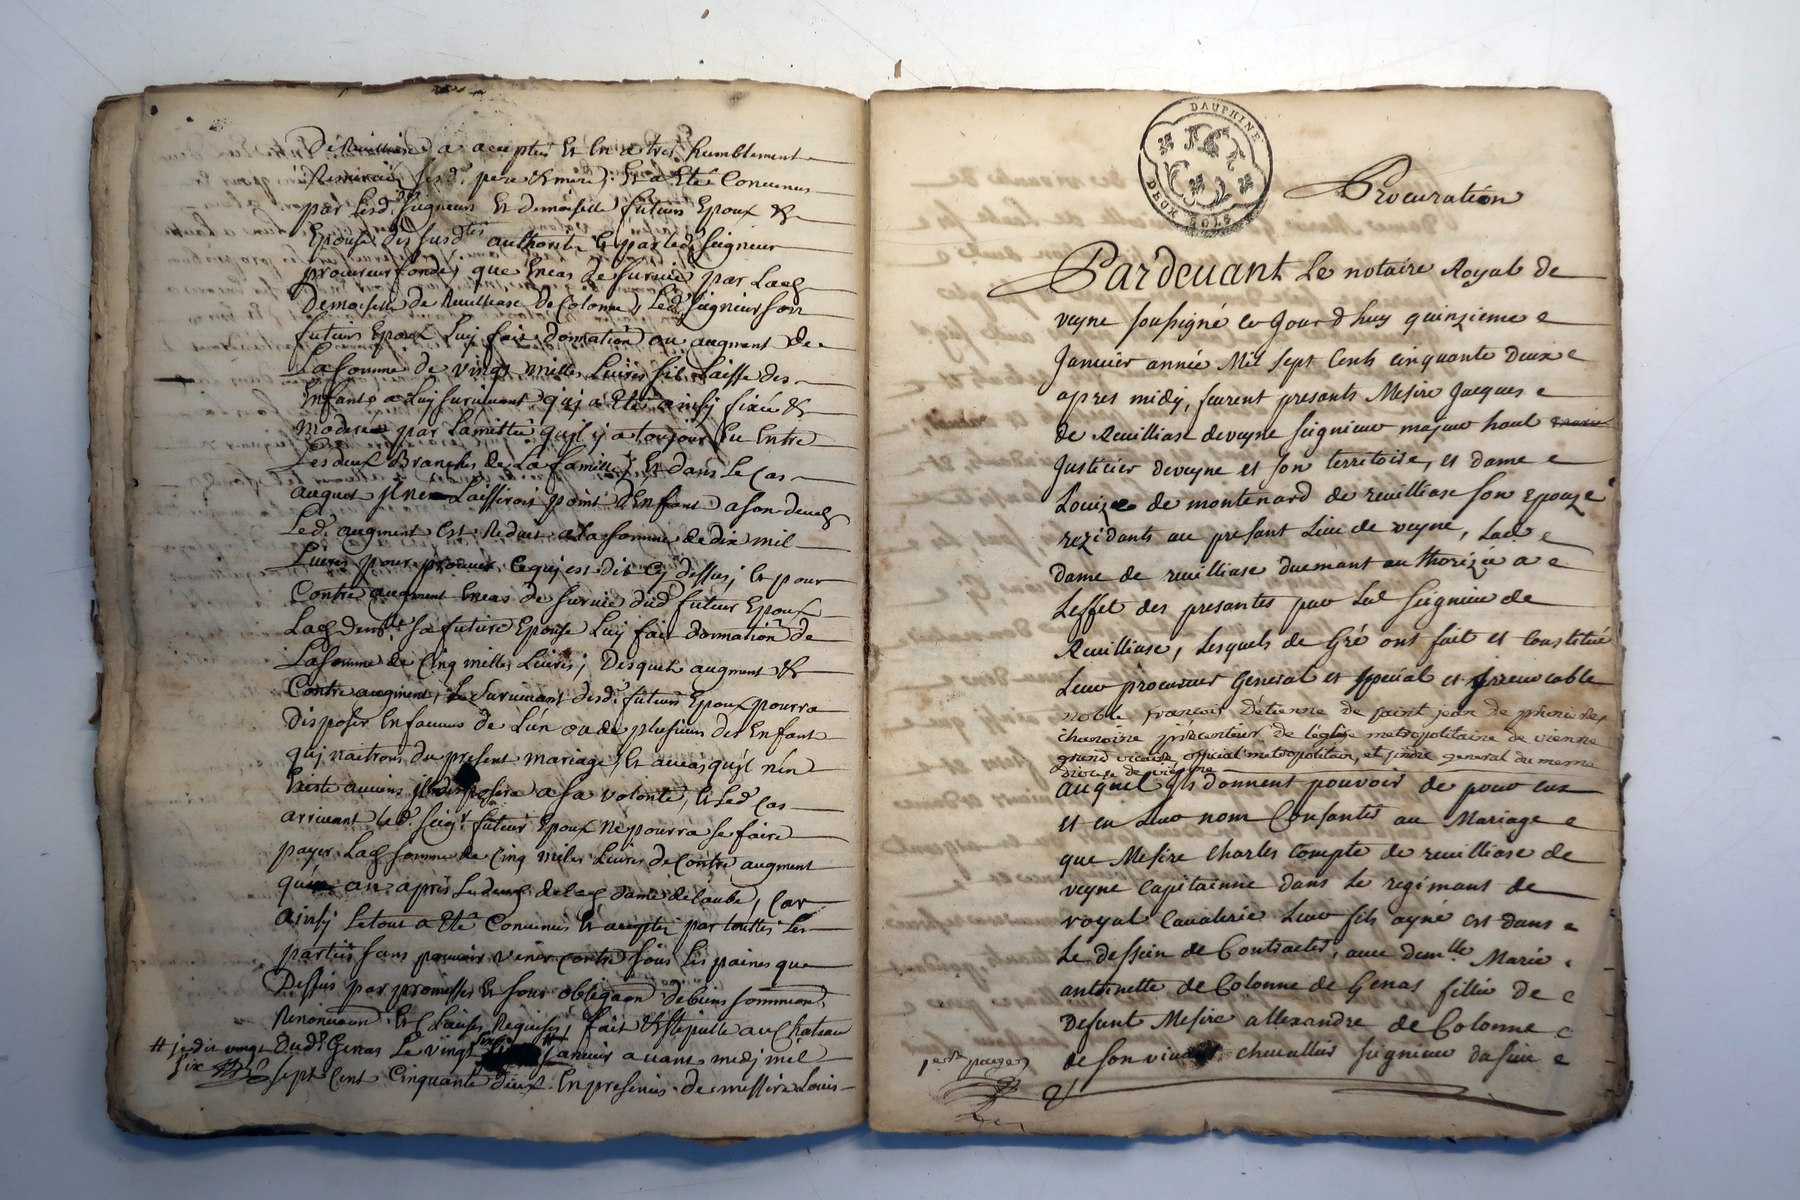 a accepté Et En a tres humblement
Remercié sesd. pere & mere; Et a Eté Convenus
par lesd. Seigneur Et demoiselle futurs Epoux &
Epouse des susd. authorité Et par led. Seigneur
procureur fondé, que En cas de survie par lad.
Demoiselle de Reuilliase de Colonne, led. Seigneur son
futeur Epoux Luy fait donnation ou augment de
La Somme de vingt milles Livres sil Laisse des
Enfants a Luy survivant qui a Eté ainsy fixée &
modérée par Lamitié quil y a toujour Eu Entre
Les deux Branches de La famille, Et dans le Cas
auquel il ne Laisserois point d'Enfant a son deces
Led. augment Est Reduit a la somme de dix mil
Livres pour ce qui est dit Cy dessus; Et pour
Contre augment En cas de survie dud. futeur Epoux
Lad. demlle sa future Epouse Luy fait donnation de
La Somme de Cinq milles Livres; Desquels augment &
Contre augment, Le Survivant desd. futeurs Epoux pourra
disposer En faveur de L'un ou de plusieurs des Enfant
qui naitrons du present mariage, Et au cas quil n'en
Existe aucuns il disposera a sa volonté, Et led. Cas
arrivant led. Seigr. futeur Epoux ne pourra se faire
payer Lad. somme de Cinq miles Livres de Contre augment
qu'un an apres Le deces de lad. dame de Laube, Car
ainsy Le tout a Eté Convenus Et accepté par touttes Les
parties sans pouvoir venir contre sous les paines que
Dessus par promesses Et sous obligaon de biens soumission
Renonciaon Et Clauses Requises, fait & stipullé au Chateau
dud. Genas Le vingt janvier avant midy mil
# je dis vingt
six
sept Cent Cinquante deux En presences de messire Louis
DAUPHINE
DEUX SOLS
Procuration
Pardevant Le notaire Royal de
veyne soussigné ce Jourd'huy quinzieme
Janvier année Mil sept Cents cinquante deux
apres midy, furent presants Mesire Jacques
de Reuilliase de veyne seigneur majeur haut
Justicier de veyne et son territoire, et dame
Louize de montenard de reuilliase son Epouze
rezidants au presant Lieu de veyne, Lade
Dame de reuilliase duemant authorizée a
Leffet des presantes par Led Seigneur de
Reuilliase, Lesquels de Gré ont fait et Constitué
Leur procureur General et spécial et irrevocable
noble françois d'étienne de saint jean de prunieres
chanoine précenteur de l'eglise metropolitaine de vienne
grand vicaire official metropolitain, et sindic general du meme
diocese de vienne
auquel ils donnent pouvoir de pour eux
et en Leur nom Consantir au Mariage
que Mesire Charles Compte de reuilliase de
veyne Capitainne dans Le regimant de
royal Cavalerie Leur fils ayné est dans
Le dessein de Contracter, avec demlle Marie
antoinette de Colonne de Genas fillie de
Defunt Mesire allexandre de Colonne
de son vivant chevallier seigneur
1ere page